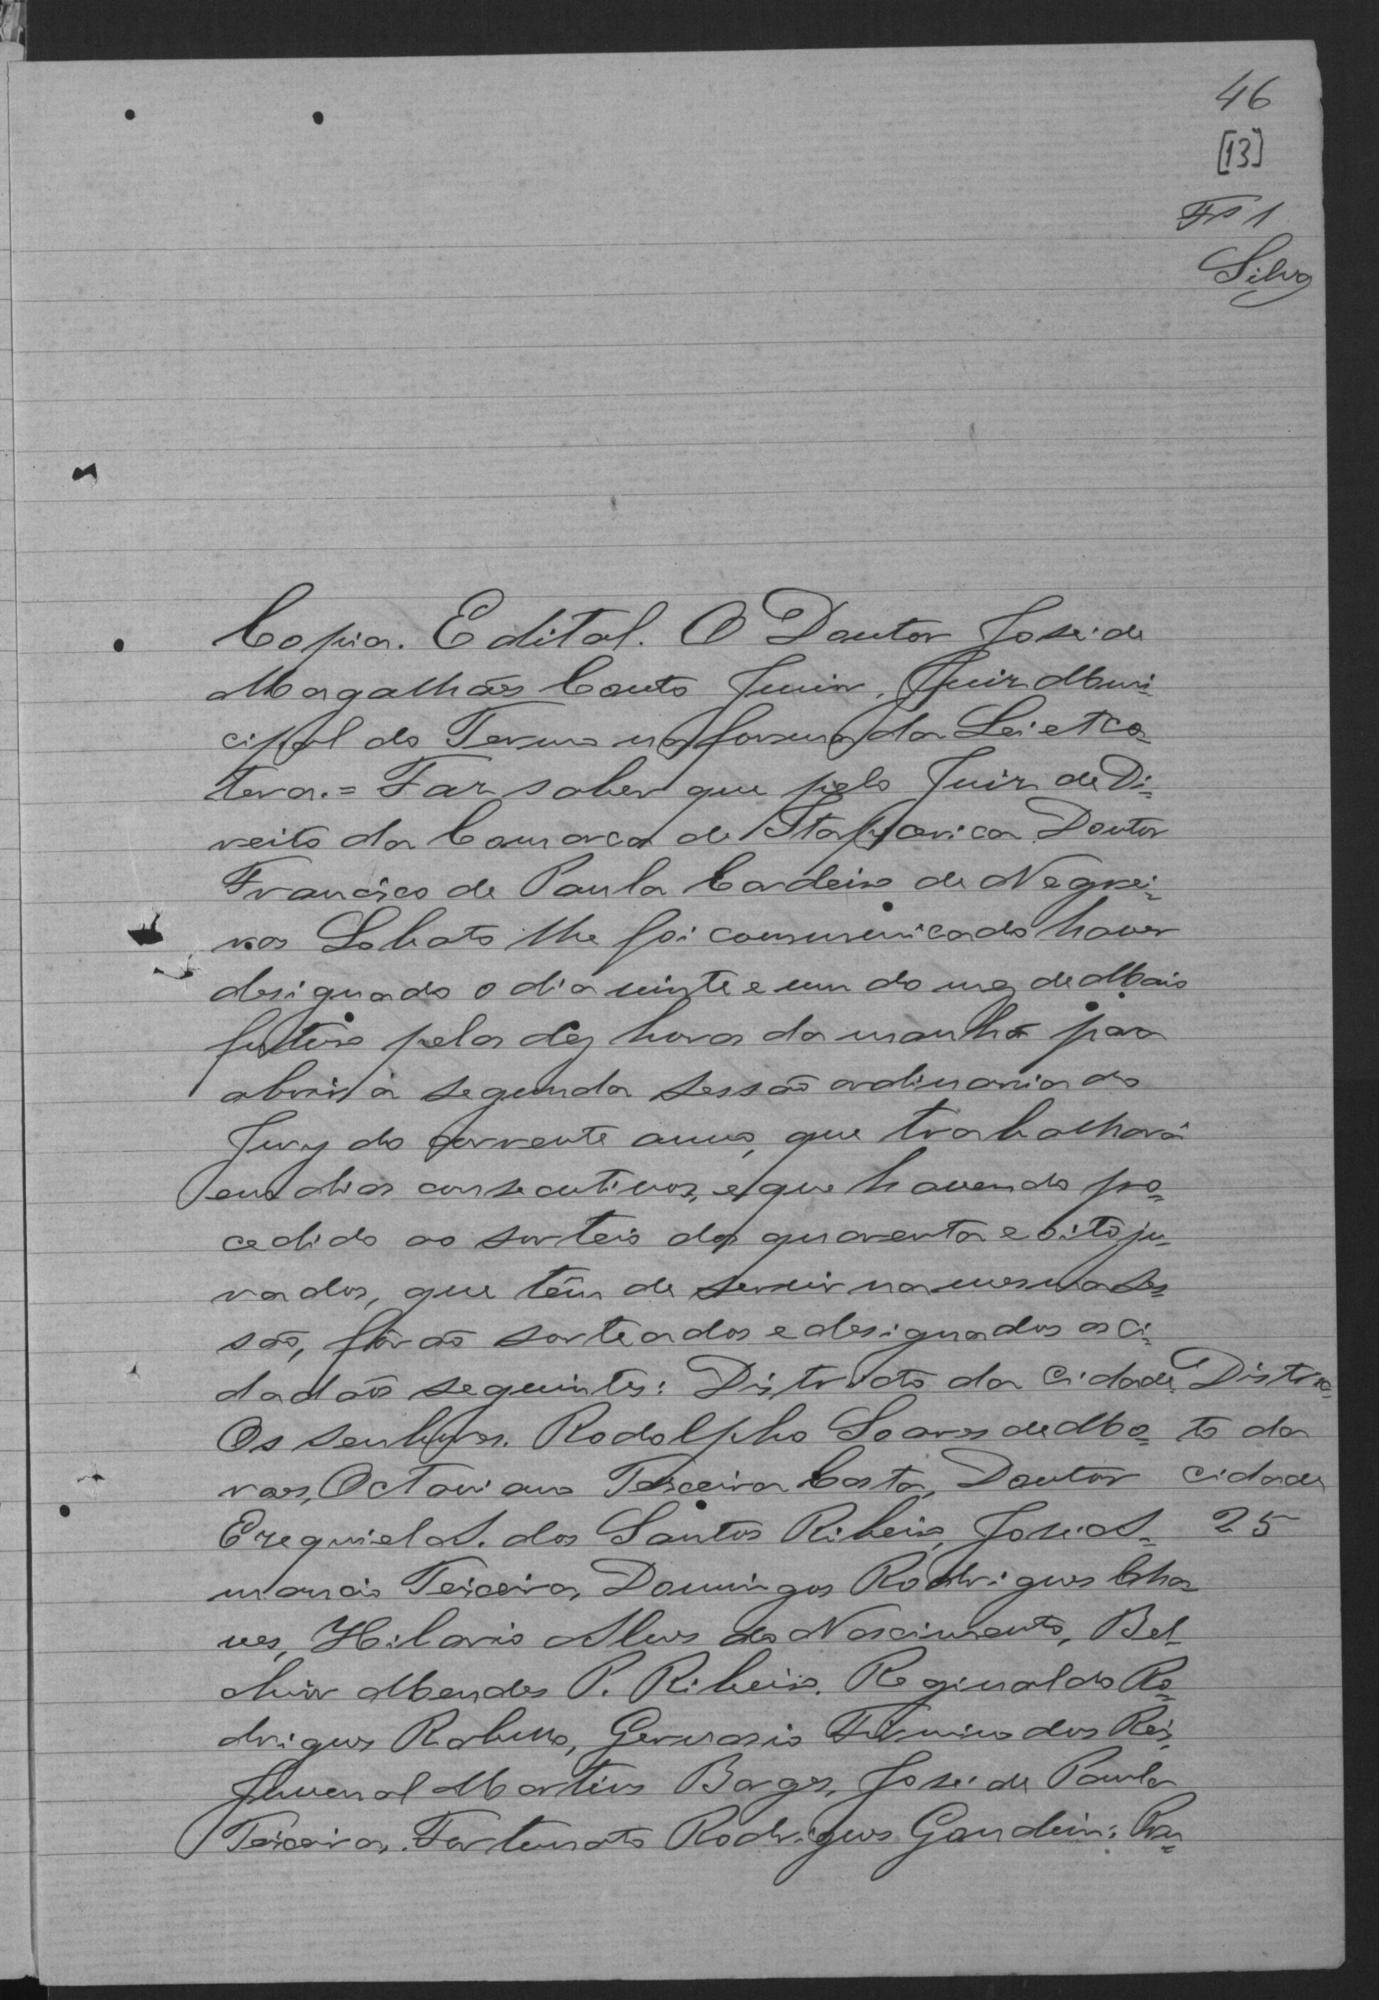 46
[13]
Fs 1
Silva
Copia. Edital. O Doutor José de
Magalhães Couto Junior, Juiz Muni-
cipal do Termo na forma da Lei etce-
tera. = Faz saber que pelo Juiz de Di-
reito da Comarca de Itapecerica Doutor
Francisco de Paula Cordeiro de Negrei-
ros Lobato lhe foi communicado haver
designado o dia vinte e um do mez de Maio
futuro pelas dez horas da manhã para
abrir a segunda sessão ordinaria do
Jury do corrente anno, que trabalhará
em dias consecutivos, e que havendo pro-
cedido ao sorteio dos quarenta e oito ju-
rados, que têm de servir na mesma ses-
são, fôrão sorteados e designados os ci-
dadãos seguintes: Districto da cidade,
Os senhores. Rodolpho Soares de Mo-
raes, Octaviano Teixeira Costa, Doutor
Ezequiel A. dos Santos Ribeiro, José A-
mancio Teixeira, Domingos Rodrigues Cha-
ves, Hilario Alves do Nascimento, Bel-
chior Mendes P. Ribeiro. Reginaldo Ro-
drigues Rabello, Gervasio Firmino dos Reis,
Juvenal Martins Borges, José de Paula
Teixeira, Fortunato Rodrigues Gondim;
Distric-
to da
cidade
25